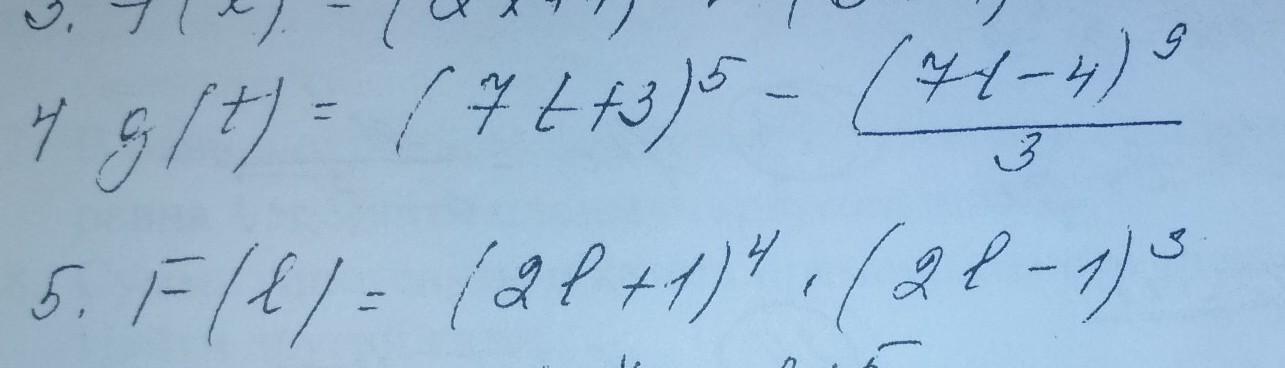 4 g(t) = (7t+3)^5 - (7t-4)^9/3
5. F(l) = (2l+1)^4 · (2l-1)^3